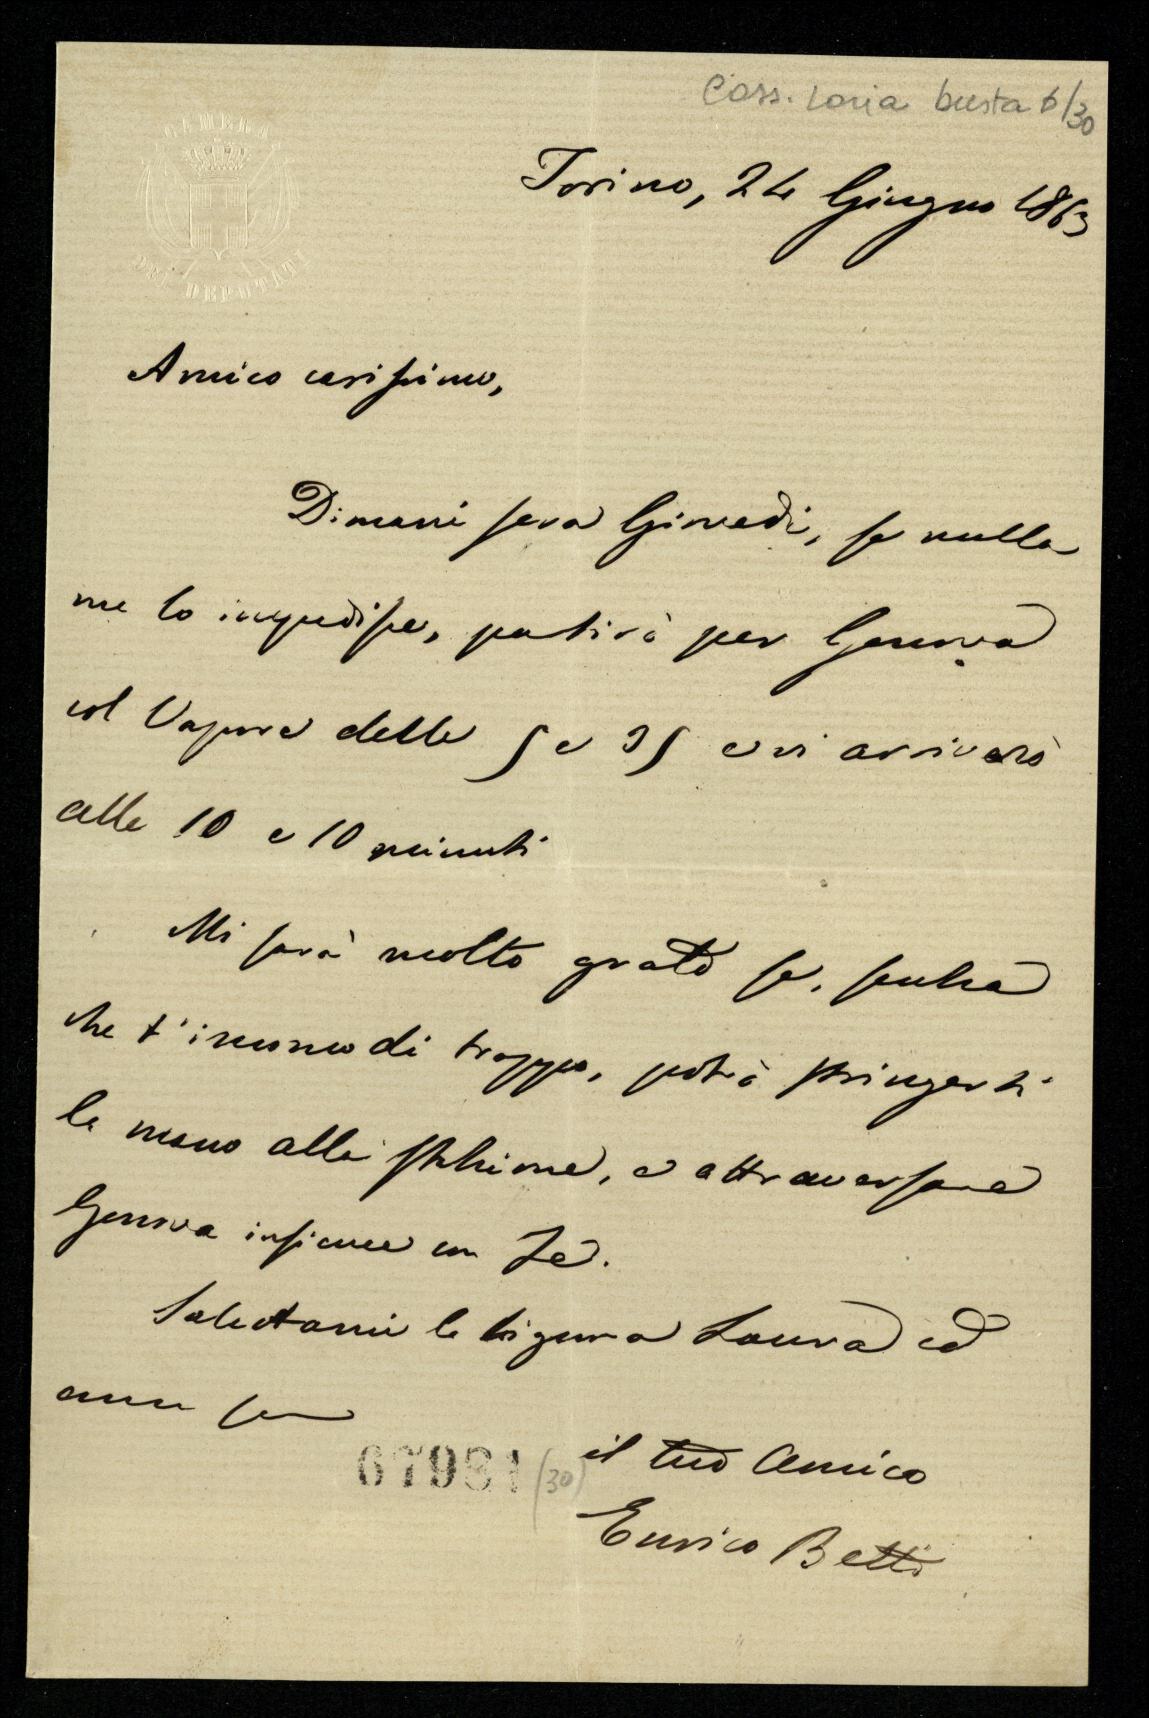 Cass. Loria busta 6/30
CAMERA
DEI DEPUTATI
Torino, 24 Giugno 1863
Amico carissimo,
Dimani sera Giovedì, se nulla
me lo impedisse, partirò per Genova
col Vapore delle 5 e 35 e vi arriverò
alle 10 e 10 minuti
Mi sarà molto grato se, senza
che t'incomodi troppo, potrò stringerti
la mano alla stazione, e attraversare
Genova insieme con Te.
Salutami la Signora Laura ed
ama
il tuo Amico
67931 (30)
Enrico Betti